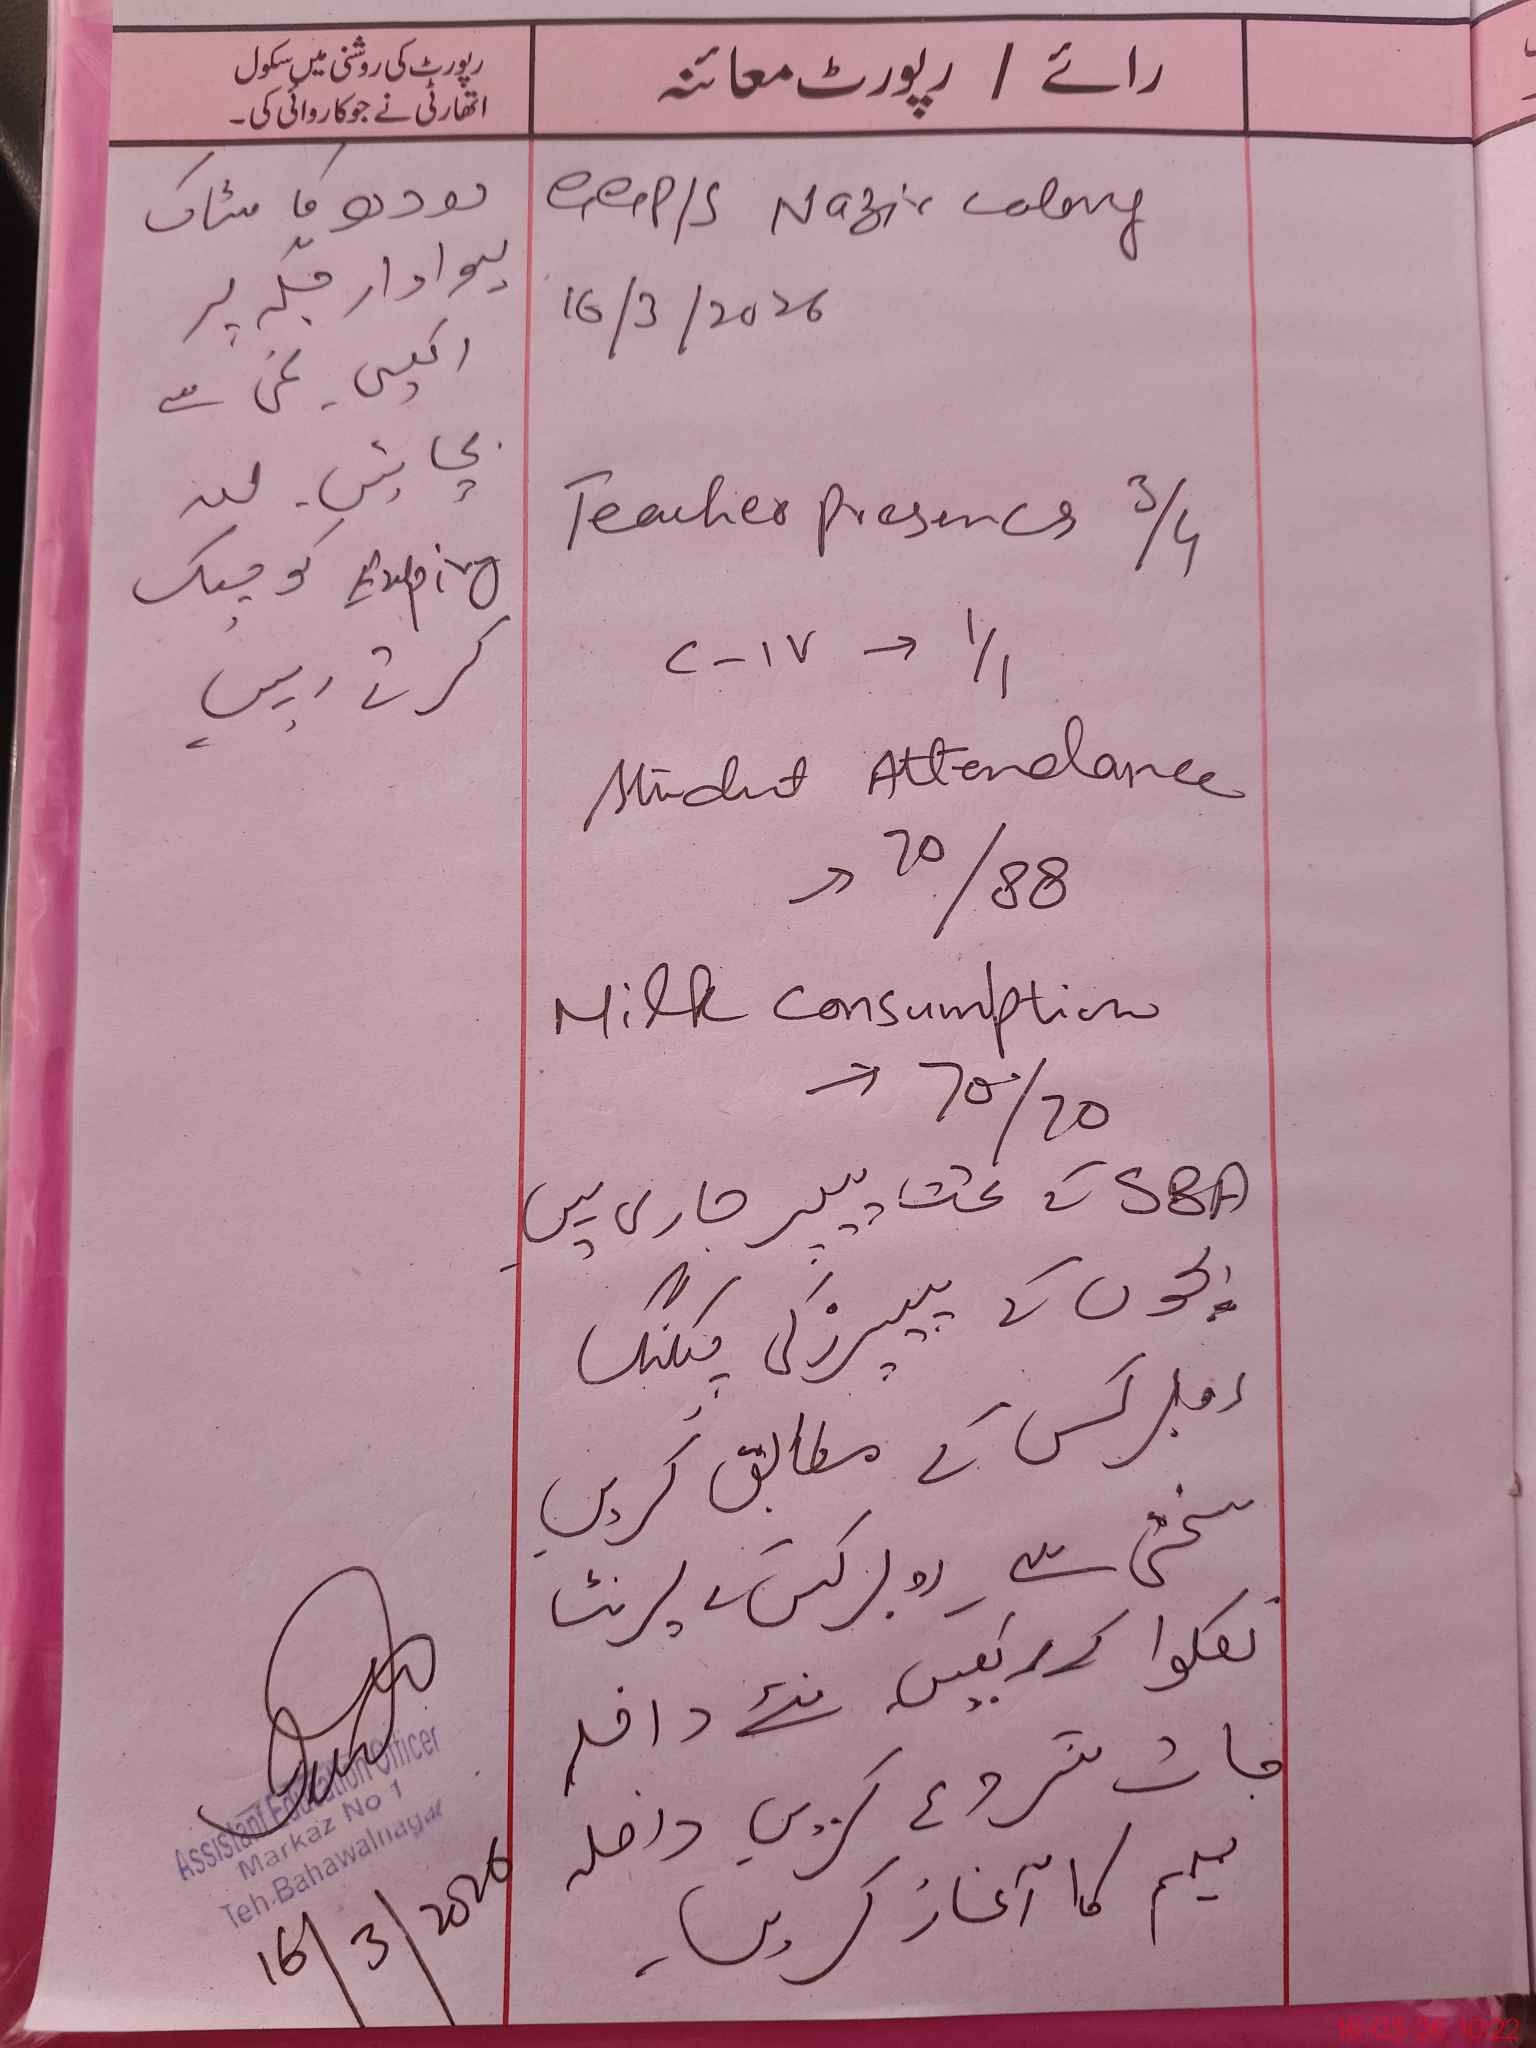 رائے / رپورٹ معائنہ
GGP/S Nazir colony
16/3/2026
Teacher presence 3/4
C-IV → 1/1
Student Attendance
→ 70/88
Milk Consumption
→ 70/70
SBA کے تحت پیپر جاری ہیں
بچوں کے پیپرز کی چیکنگ
روبرکس کے مطابق کریں
سختی سے۔ روبرکس کے پرنٹ
نکلوا کر رکھیں۔ نئے داخلہ
جات شروع کریں داخلہ
مہم کا آغاز کریں۔
رپورٹ کی روشنی میں سکول
اتھارٹی نے جو کاروائی کی۔
دودھ کا سٹاک
ہوادار جگہ پر
رکھیں۔ نمی سے
بچائیں۔
Expiry کو چیک
کرتے رہیں
Assistant Education Officer
Markaz No 1
Teh. Bahawalnagar
16/3/2026
16-03-26 10:22